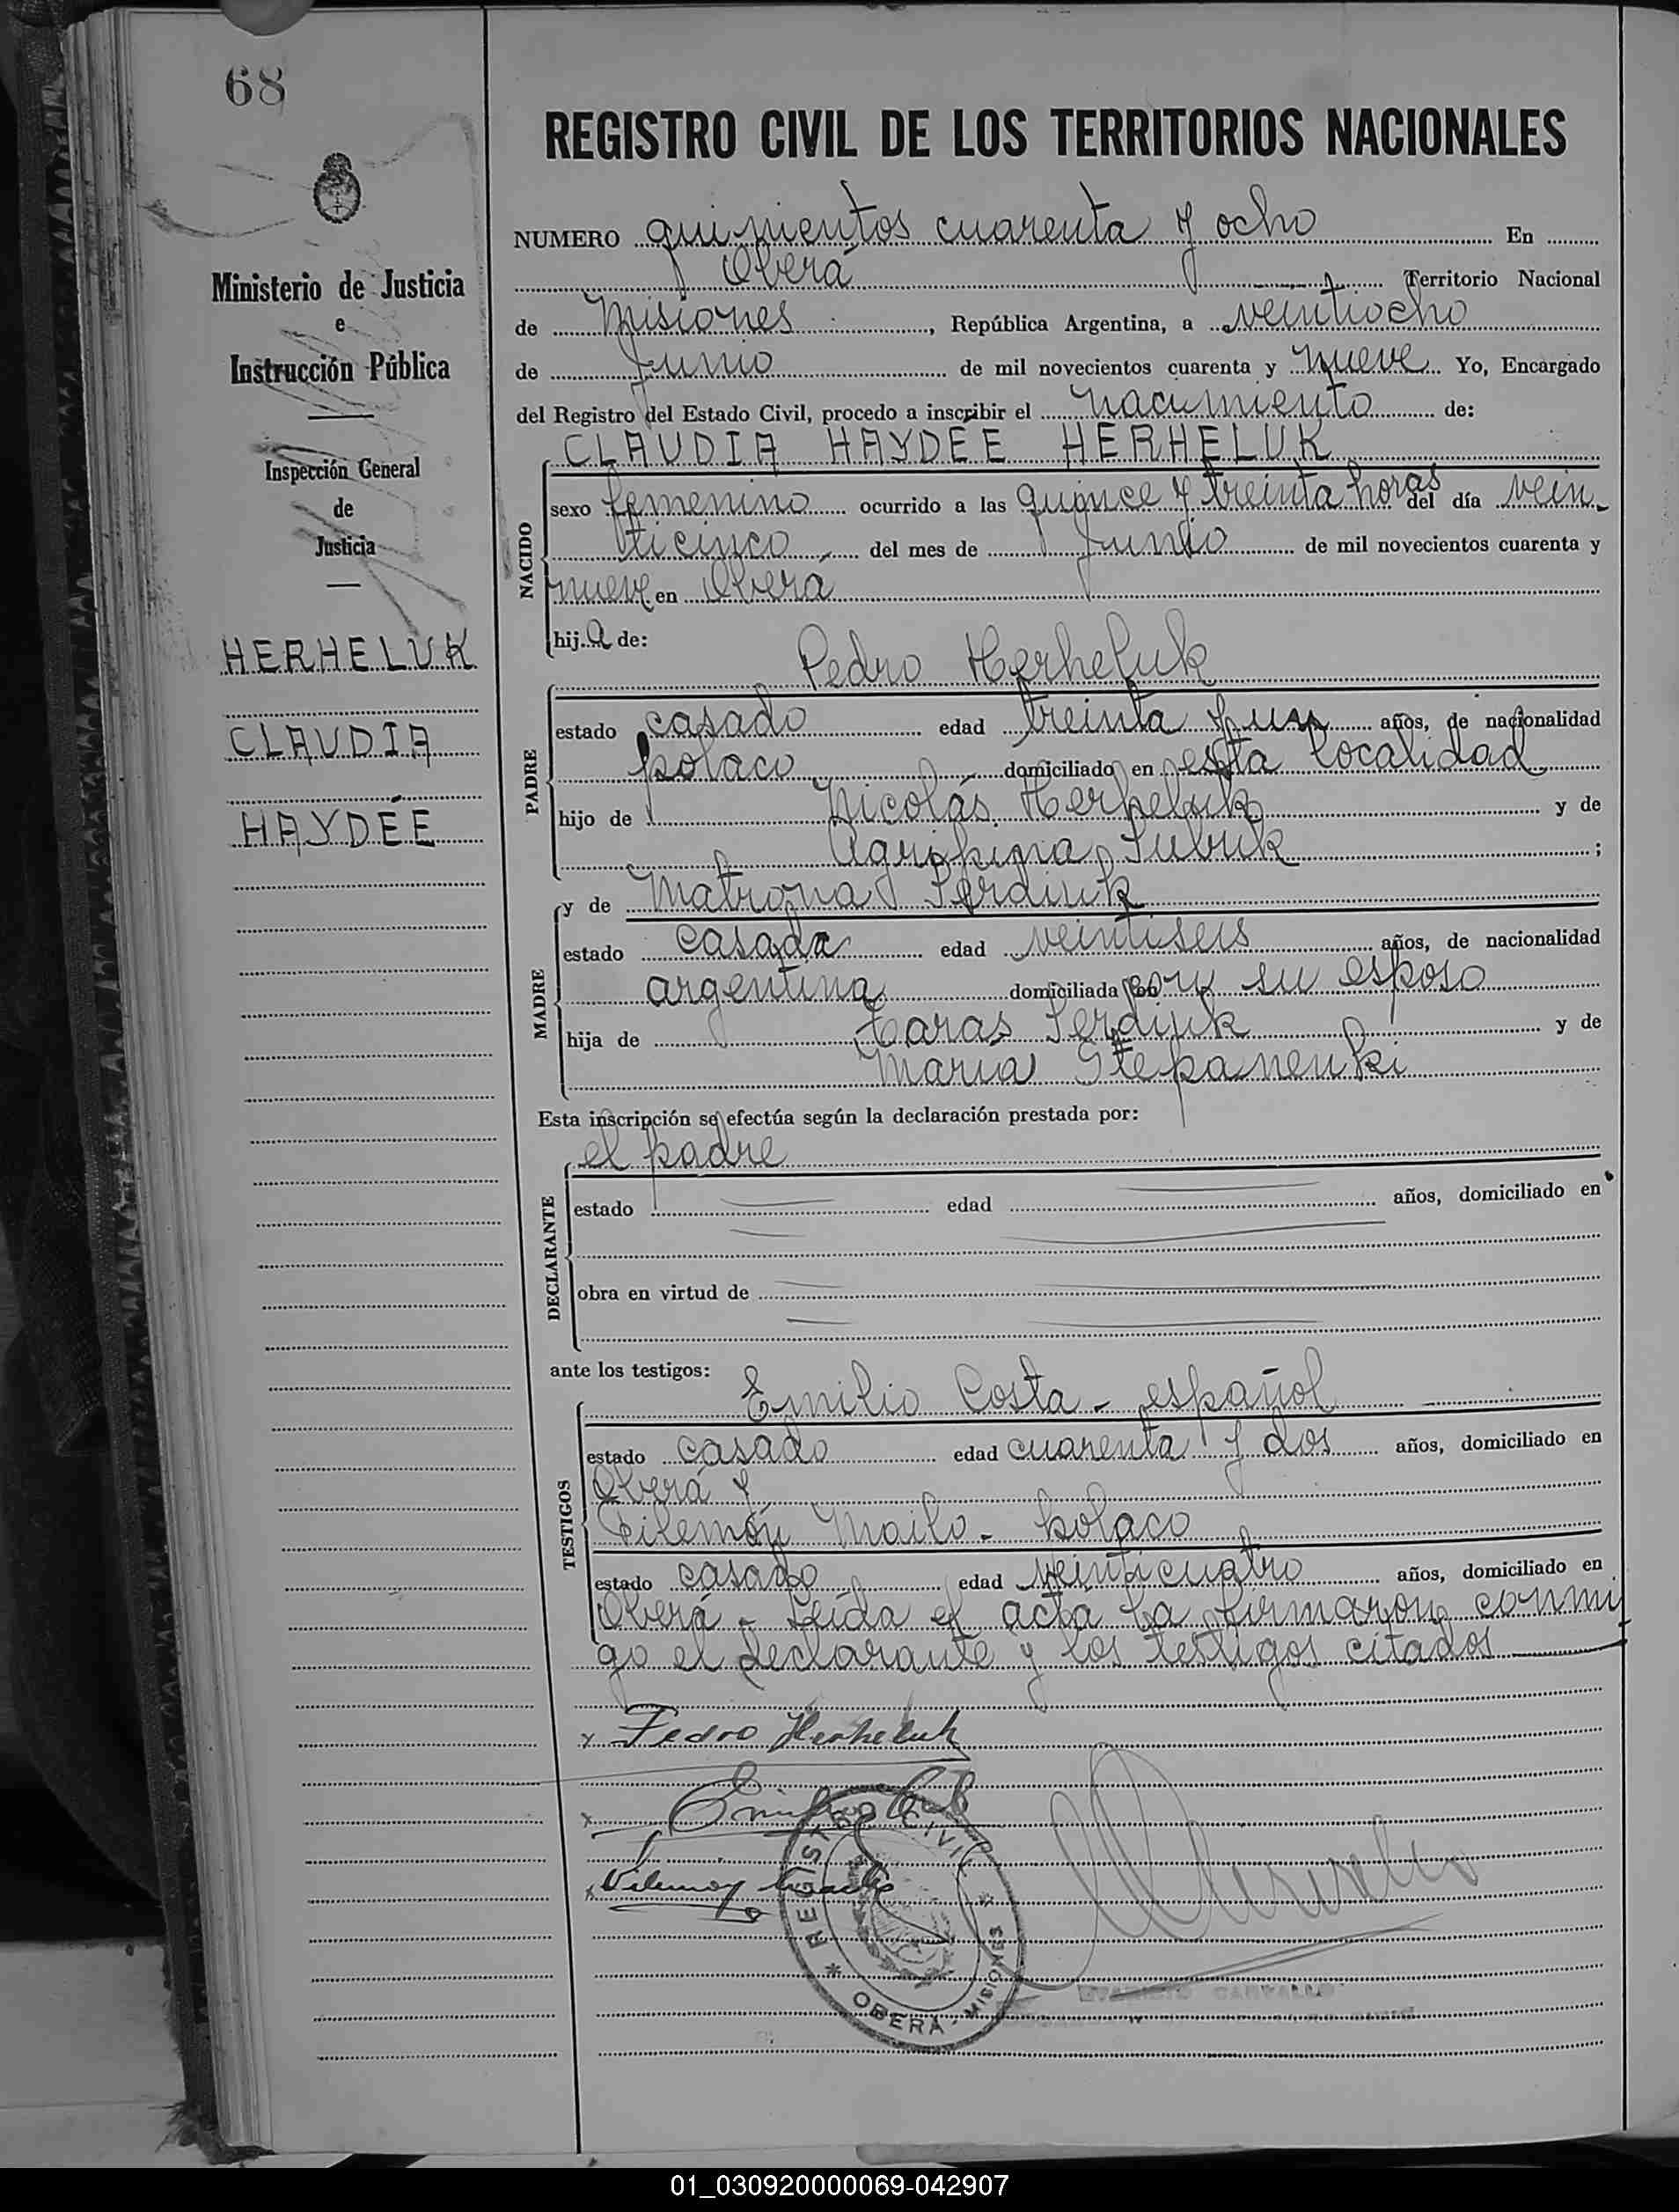 68
REGISTRO CIVIL DE LOS TERRITORIOS NACIONALES
Ministerio de Justicia
e
Instrucción Pública
Inspección General
de
Justicia
HERHELUK
CLAUDIA
HAYDÉE
NUMERO quinientos cuarenta y ocho En
Oberá Territorio Nacional
de Misiones, República Argentina, a veintiocho
de Junio de mil novecientos cuarenta y nueve Yo, Encargado
del Registro del Estado Civil, procedo a inscribir el nacimiento de:
CLAUDIA HAYDÉE HERHELUK
NACIDO
sexo femenino ocurrido a las quince y treinta horas del día vein-
ticinco del mes de Junio de mil novecientos cuarenta y
nueve en Oberá
hija de:
Pedro Herheluk
PADRE
estado casado edad treinta y un años, de nacionalidad
polaco domiciliado en esta localidad
hijo de Nicolás Herheluk y de
Agripina ;
y de Matrona Serdiuk
MADRE
estado casada edad veintiseis años, de nacionalidad
argentina domiciliada con su esposo
hija de Taras Serdiuk y de
María Stepanenki
Esta inscripción se efectúa según la declaración prestada por:
el padre
DECLARANTE
estado edad años, domiciliado en
obra en virtud de
ante los testigos:
Emilio Costa - español
TESTIGOS
estado casado edad cuarenta y dos años, domiciliado en
Oberá y
Filemón Mailo - polaco
estado casado edad veinticuatro años, domiciliado en
Oberá - Leída el acta la firmaron conmi
go el declarante y los testigos citados
x Pedro Herheluk
REGISTRO CIVIL
OBERÁ - MISIONES
01_030920000069-042907